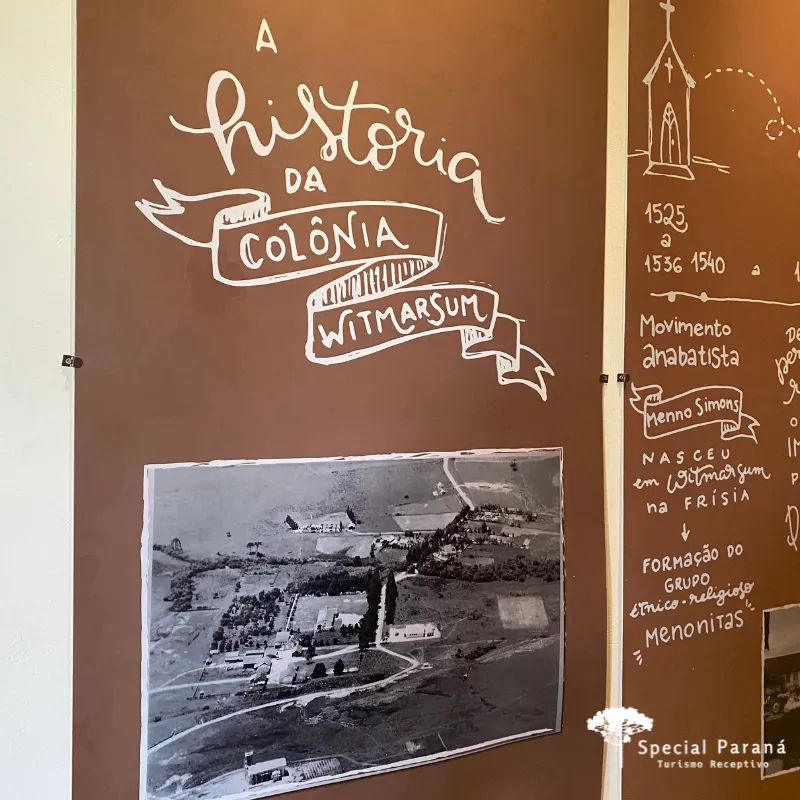 A
história
DA
COLÔNIA
WITMARSUM
1525
a
1536 1540 a
Movimento
anabatista
Menno Simons
NASCEU
em Witmarsum
na FRÍSIA
FORMAÇÃO DO
GRUPO
étnico-religioso
MENONITAS
Special Paraná
Turismo Receptivo